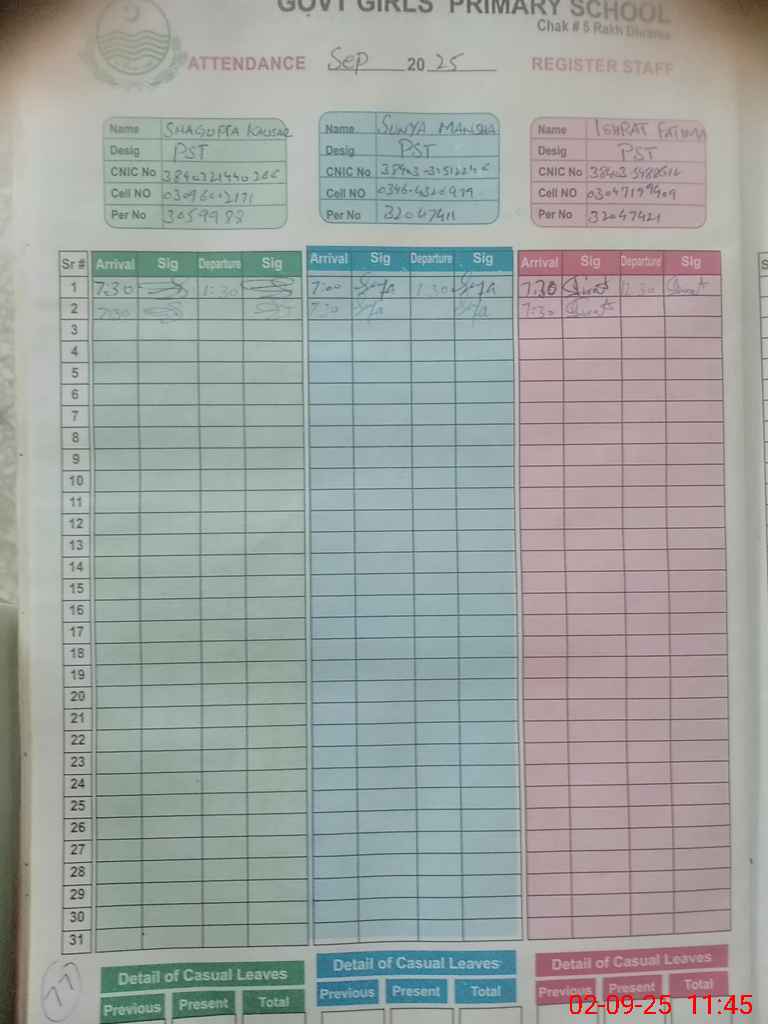 GOVT GIRLS' PRIMARY SCHOOL
Chak # 5 Rakh Dhrema
ATTENDANCE Sep 2025 REGISTER STAFF
Name SHAGUFTA KAUSAR
Desig PST
CNIC No
Cell NO
Per No 3059988
Name SUNYA MANSHA
Desig PST
CNIC No
Cell NO
Per No 32047411
Name ISHRAT FATIMA
Desig PST
CNIC No
Cell NO
Per No 32047421
Sr # Arrival Sig Departure Sig Arrival Sig Departure Sig Arrival Sig Departure Sig
1 7:30 1:30 7:00 1:30 7:30 1:30
2 7:30 7:30 7:30
3
4
5
6
7
8
9
10
11
12
13
14
15
16
17
18
19
20
21
22
23
24
25
26
27
28
29
30
31
77
Detail of Casual Leaves Detail of Casual Leaves Detail of Casual Leaves
Previous Present Total Previous Present Total Previous Present Total
02-09-25 11:45